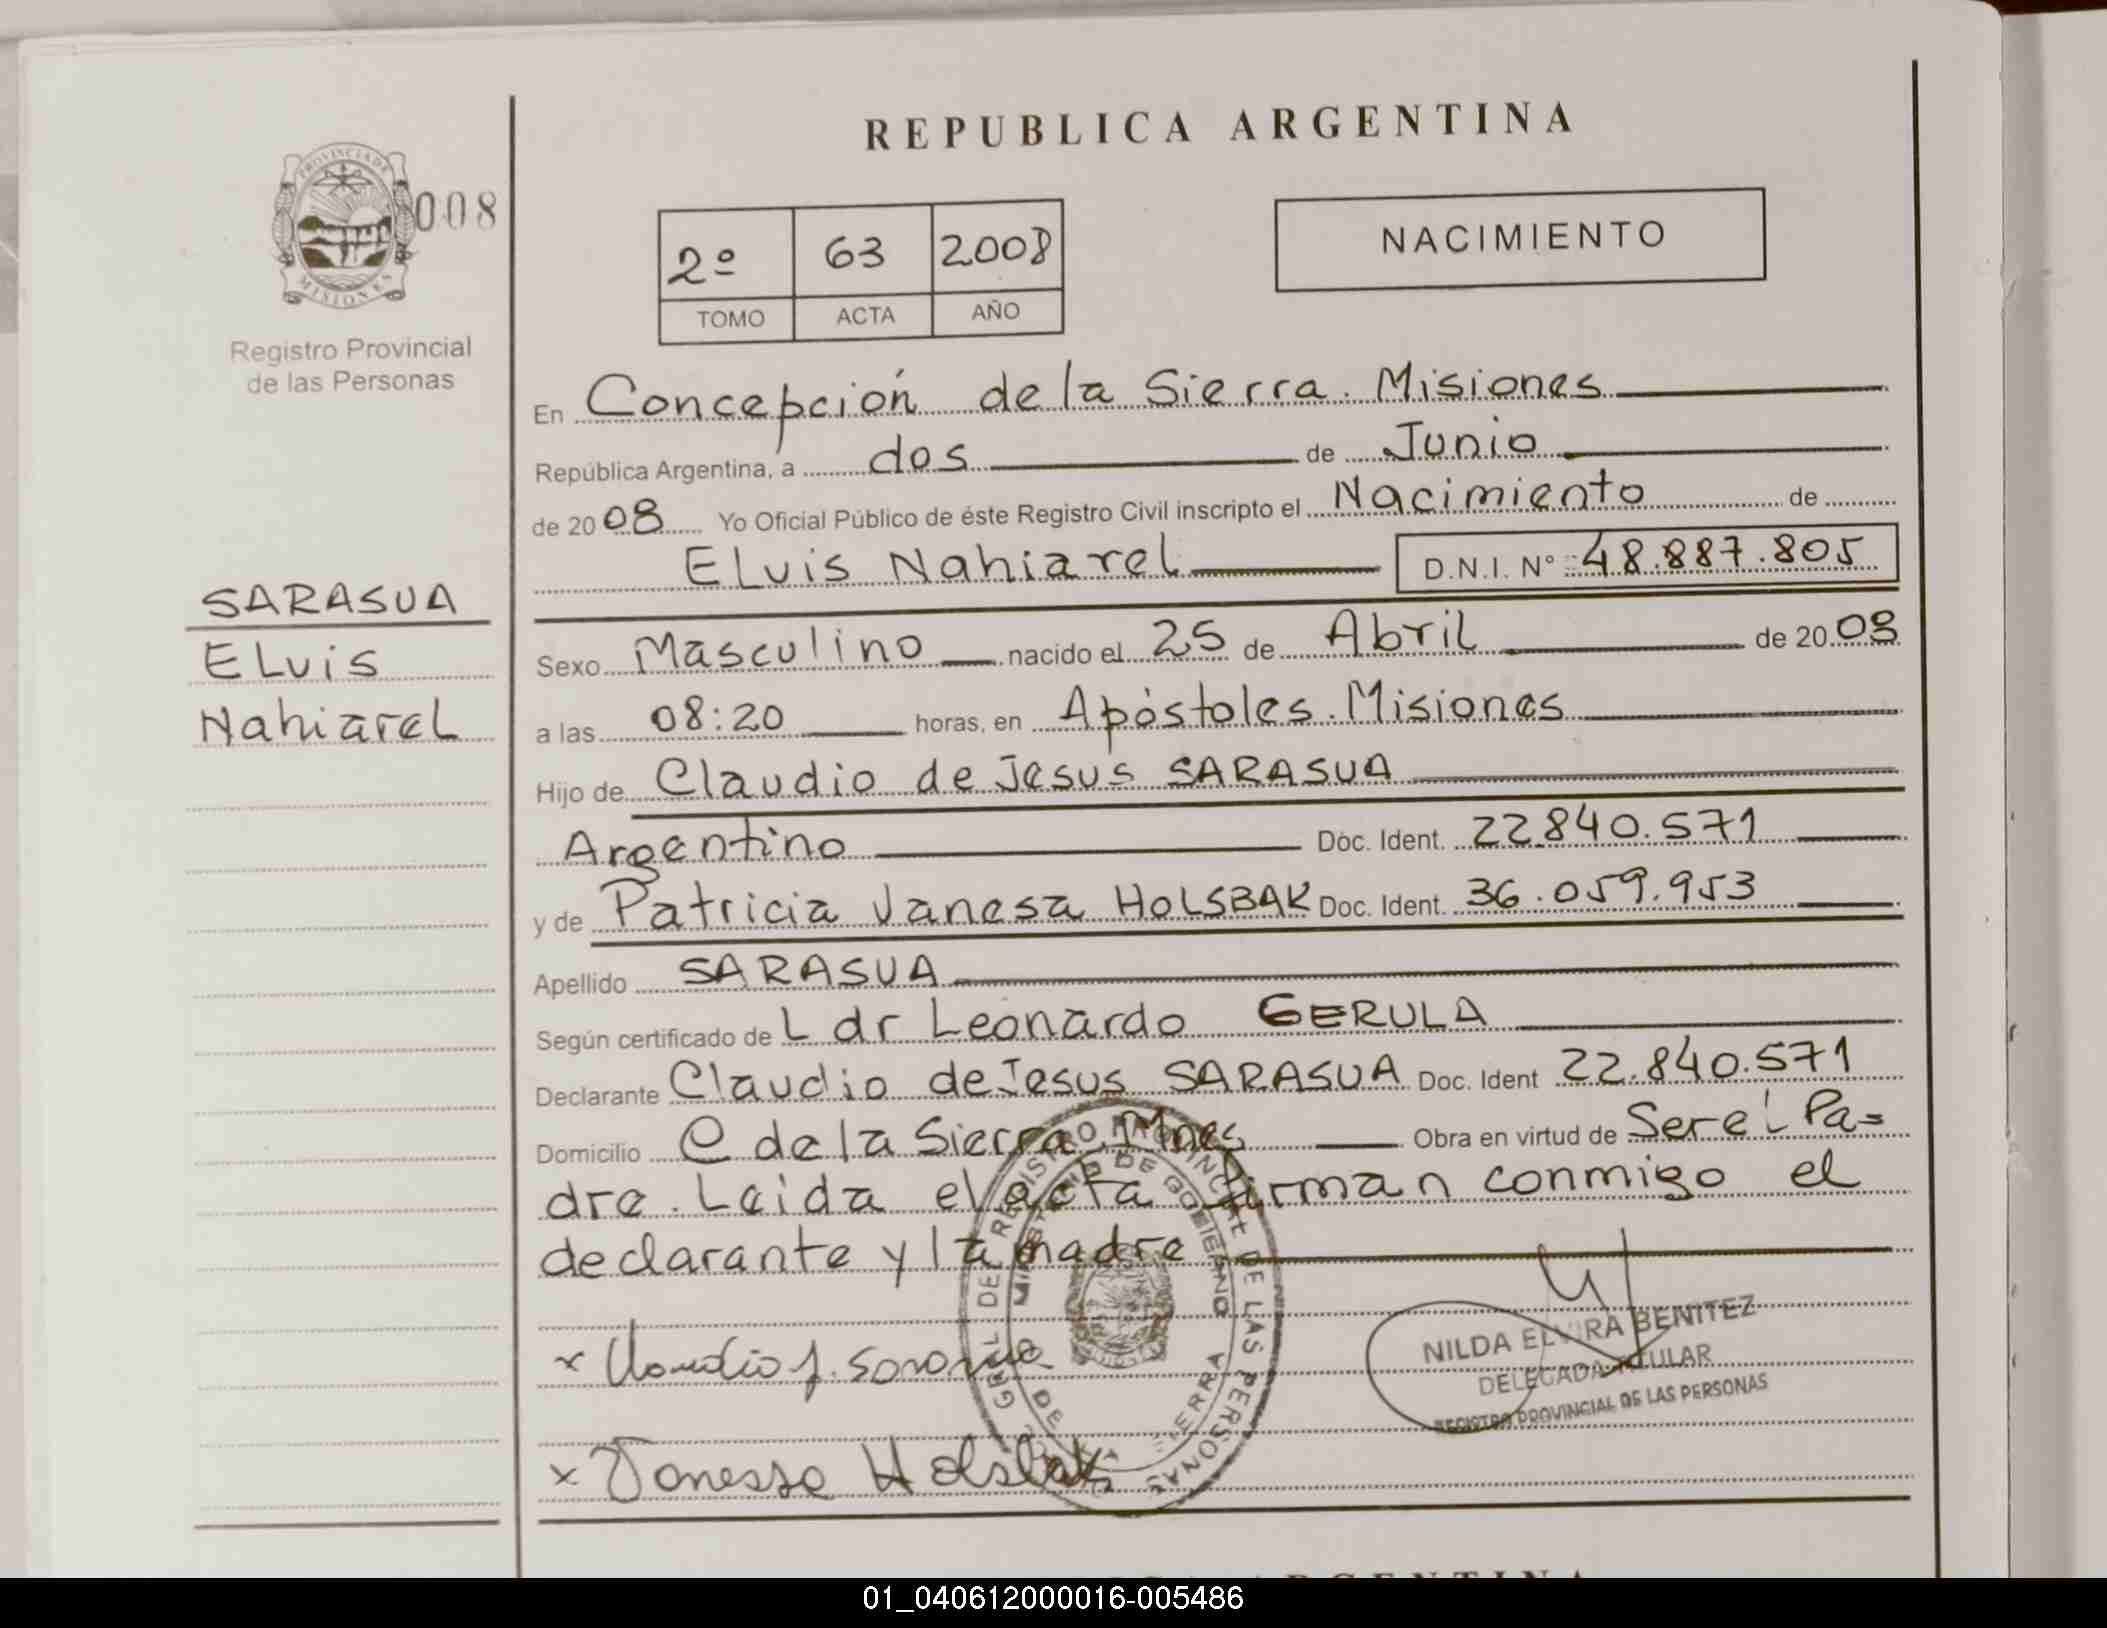 REPUBLICA ARGENTINA
PROVINCIA DE
MISIONES
008
Registro Provincial
de las Personas
2º 63 2008
TOMO ACTA AÑO
NACIMIENTO
En Concepción de la Sierra. Misiones
República Argentina, a dos de Junio
de 2008 Yo Oficial Público de éste Registro Civil inscripto el Nacimiento de
ELvis Nahiarel D.N.I. Nº 48.887.805
SARASUA
ELvis
NahiareL
Sexo Masculino nacido el 25 de Abril de 2008
a las 08:20 horas, en Apóstoles. Misiones
Hijo de Claudio de Jesus SARASUA
Argentino Doc. Ident. 22.840.571
y de Patricia Vanesa HOLSBAK Doc. Ident. 36.059.953
Apellido SARASUA
Según certificado de L dr Leonardo GERULA
Declarante Claudio de Jesus SARASUA Doc. Ident 22.840.571
Domicilio C de la Sierra. Mnes Obra en virtud de Ser el Pa=
dre. Leida el acta firman conmigo el
declarante y la madre
x Claudio J. Sarasua
x Vanessa Holsbak
GRAL DEL REGISTRO PROVINCIAL DE LAS PERSONAS
MINISTERIO DE GOBIERNO
DE SIERRA
NILDA ELVIRA BENITEZ
DELEGADA TITULAR
REGISTRO PROVINCIAL DE LAS PERSONAS
ARGENTINA
01_040612000016-005486